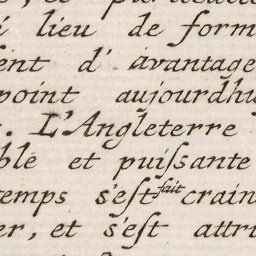 lieu de form
ent d' avantage
point aujourdhu
. L'Angleterre
ble et puiſsante
temps s'eſt fait crain
er, et s'eſt attri